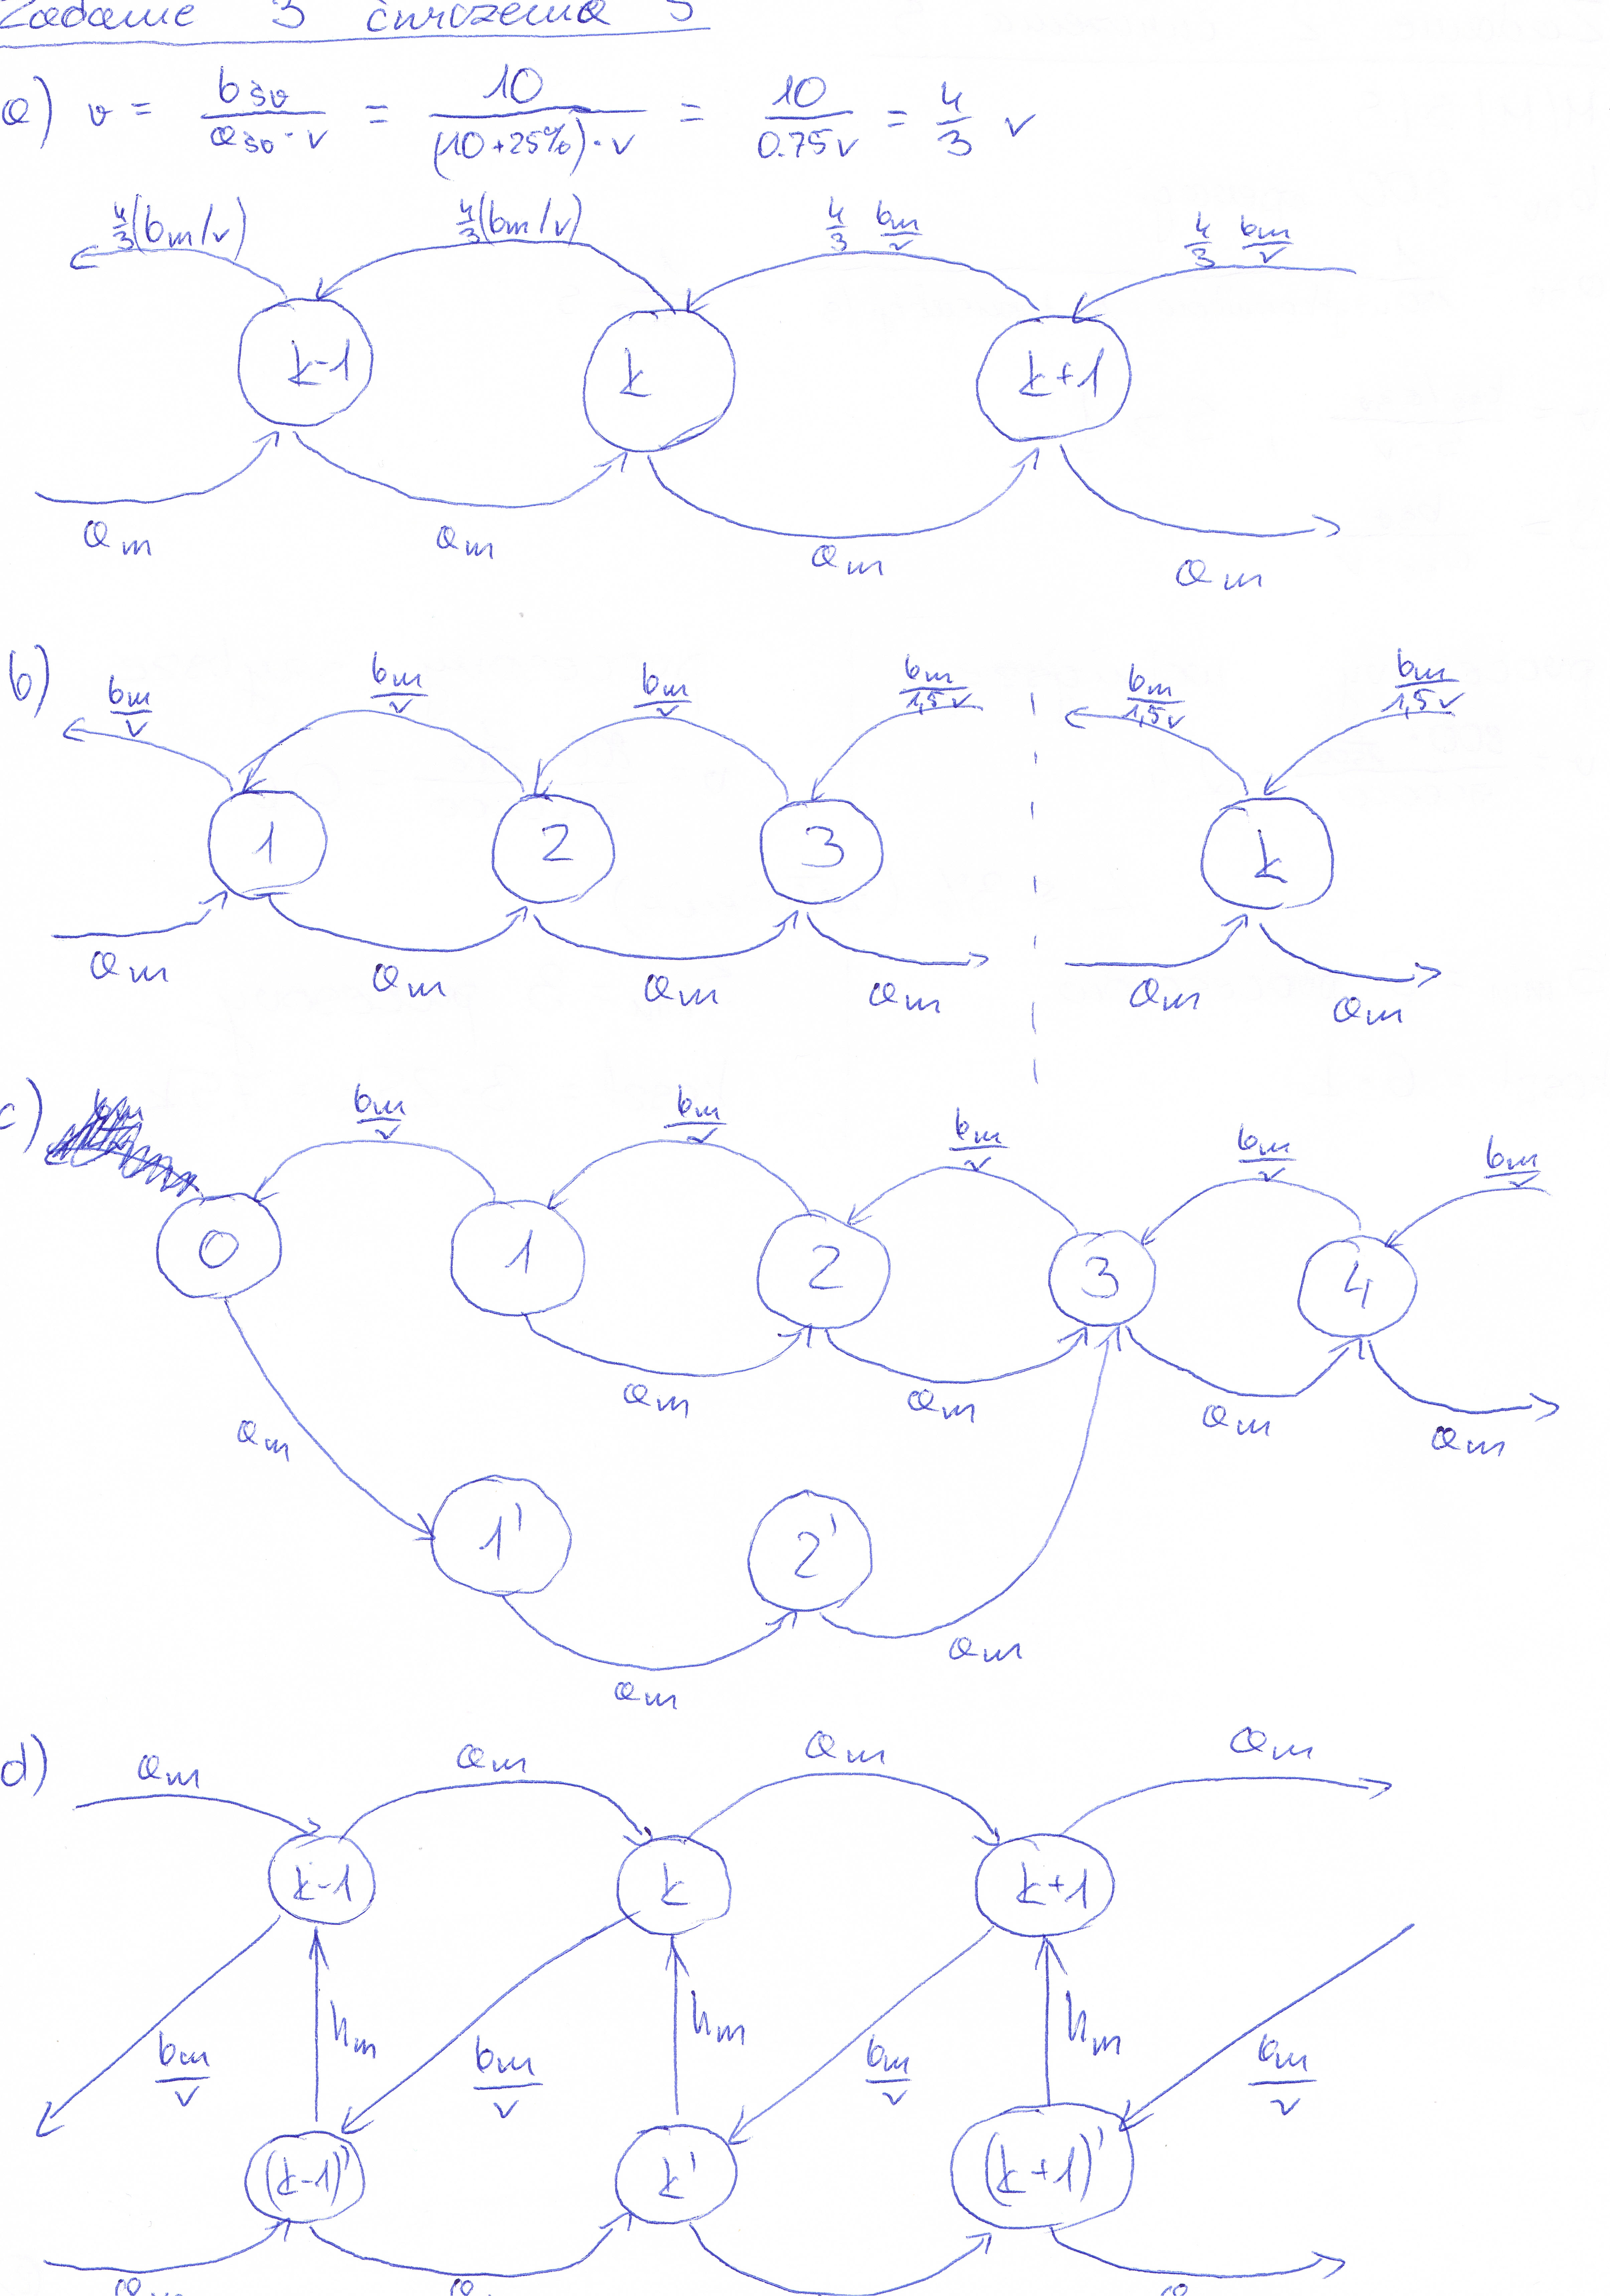 Zadanie 3 ćwiczenia 5
a) v = bśr / aśr · v = 10 / (10+25%) · v = 10 / 0.75v = 4/3 v
4/3(bm/v) 4/3(bm/v) 4/3 bm/v 4/3 bm/v
k-1 k k+1
am am am am
b) bm/v bm/v bm/v bm/1,5v bm/1,5v bm/1,5v
1 2 3 k
am am am am am am
c) bm/v bm/v bm/v bm/v bm/v
0 1 2 3 4
am am am am am
am
1' 2'
am am
d) am am am am
k-1 k k+1
hm hm hm
bm/v bm/v bm/v bm/v
(k-1)' k' (k+1)'